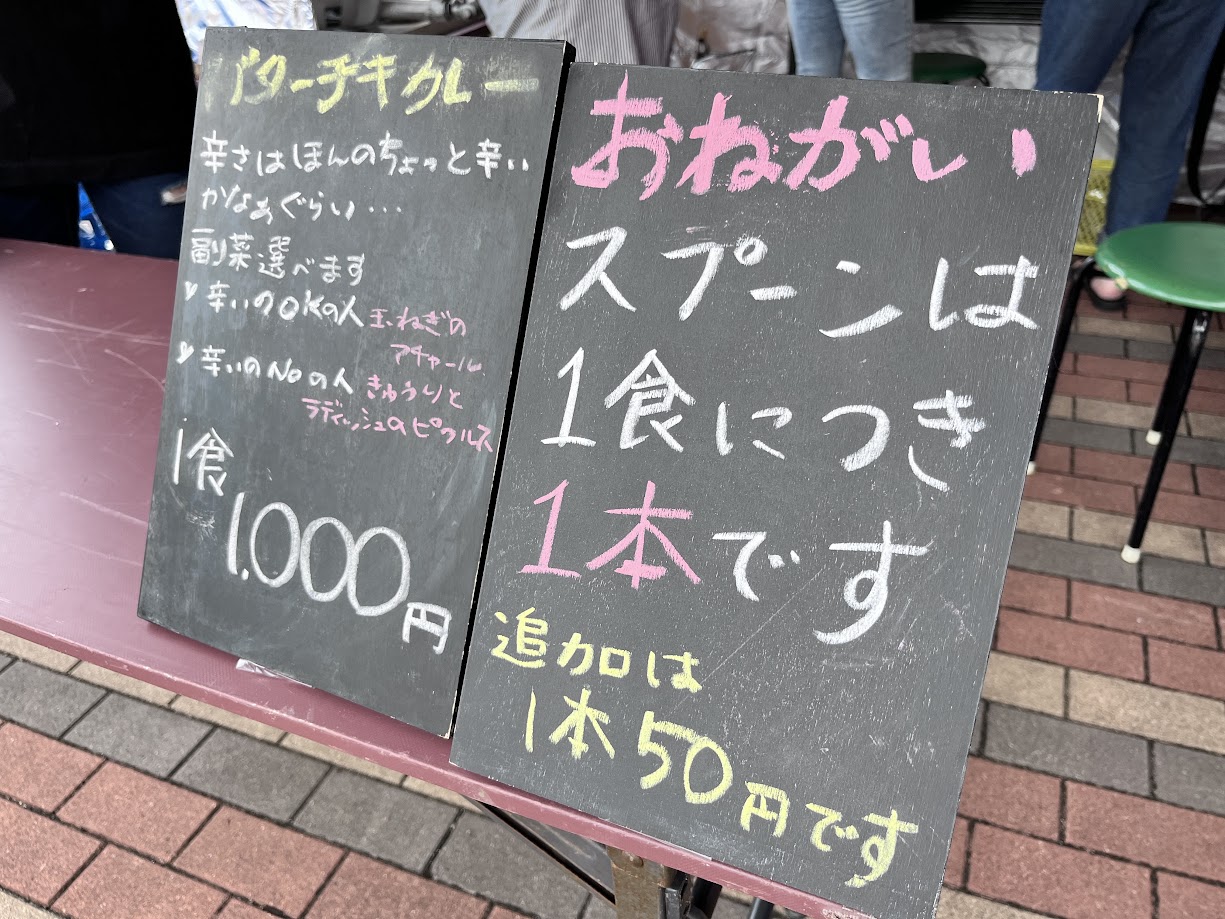 バターチキカレー
辛さはほんのちょっと辛い
かなぁぐらい…
副菜選べます
辛いのOKの人 玉ねぎの
アチャール
辛いのNoの人 きゅうりと
ラディッシュのピクルス
1食
1.000円
おねがい
スプーンは
1食につき
1本です
追加は
1本50円です